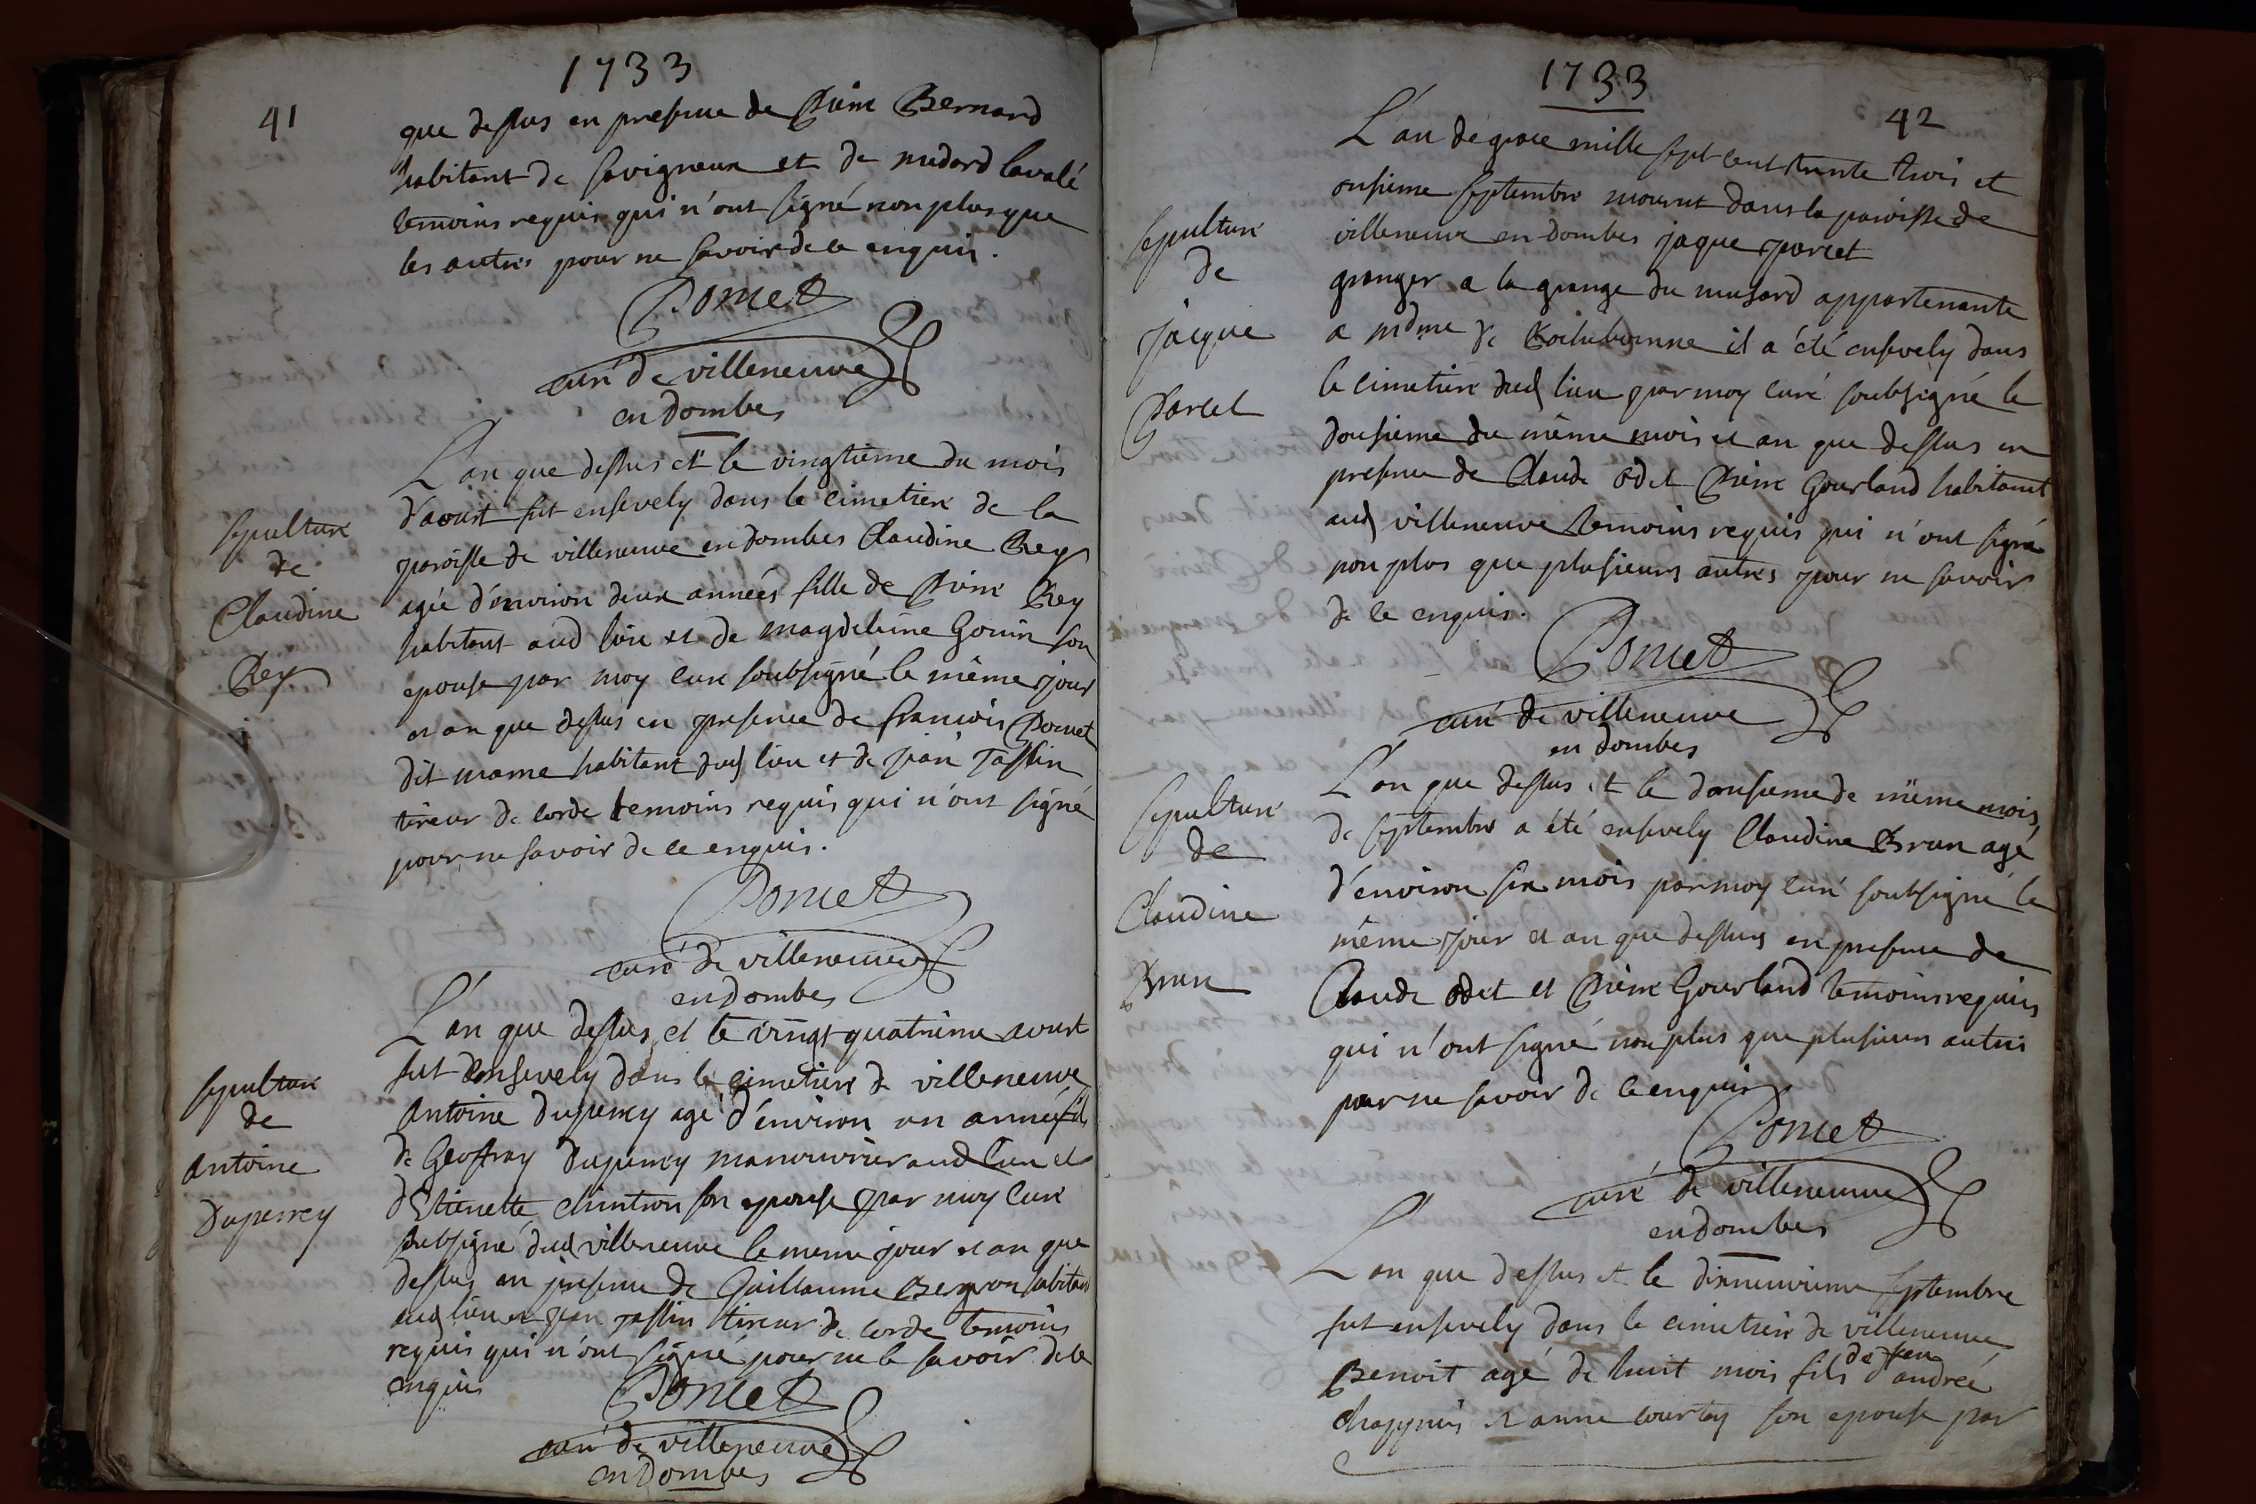 1733
41
que dessus en presence de Pierre Bernard
habitant de savigneux et de medard lavalé
temoins requis qui n'ont signé non plus que
les autres pour ne savoir de ce enquis.
Poncet
curé de villeneuve
en dombes
L'an que dessus et le vingtième du mois
d'aoust fut ensevely dans le cimetiere de la
paroisse de villeneuve en dombes Claudine Rey
agée d'environ deux années fille de Pierre Rey
habitant aud lieu et de magdeleine Gonin son
epouse par moy curé soubsigné le même jour
et an que dessus en presence de francois Poncet
dit mama habitant dud lieu et de jean Tassin
tireur de corde temoins requis qui n'ont signé
pour ne savoir de ce enquis.
Poncet
curé de villeneuve
en dombes
sepulture
de
Claudine
Rey
L'an que dessus et le vingt quatrième aoust
fut ensevely dans le cimetiere de villeneuve
Antoine Duperrey agé d'environ un année fils
de Geoffray Duperrey manouvrier aud lieu et
d'Etienette chintron son epouse par moy curé
soubsigné dud villeneuve le meme jour et an que
dessus en presence de Guillaume Bergeron habitant
aud lieu et jean Tassin tireur de corde temoins
requis qui n'ont signé pour ne le savoir de ce
enquis
Poncet
curé de villeneuve
en Dombes
sepulture
de
antoine
Duperrey
1733
42
L'an de grace mille sept cent trente trois et
onsieme septembre mourut dans la paroisse de
villeneuve en dombes jaque parcet
granger a la grange du musard appartenante
a mdme de Rochebonne il a été ensevely dans
le cimetiere dud lieu par moy curé soubsigné le
dousieme du même mois et an que dessus en
presence de Claude Odet Pierre Gourland habitant
aud villeneuve temoins requis qui n'ont signé
non plus que plusieurs autres pour ne savoir
de ce enquis.
Poncet
curé de villeneuve
en dombes
sepulture
de
jacque
Parcet
L'an que dessus et le dousieme de même mois
de septembre a été ensevely Claudine Brun agé
d'environ six mois par moy curé soubsigné le
même jour et an que dessus en presence de
Claude Odet et Pierre Gourland temoins requis
qui n'ont signé non plus que plusieurs autres
pour ne savoir de ce enquis
Poncet
curé de villeneuve
en dombes
sepulture
de
Claudine
Brun
L'an que dessus et le dixneuvieme septembre
fut ensevely dans le cimetiere de villeneuve
Benoit agé de huit mois fils de feu andrée
chappuis et anne courtoy son epouse par